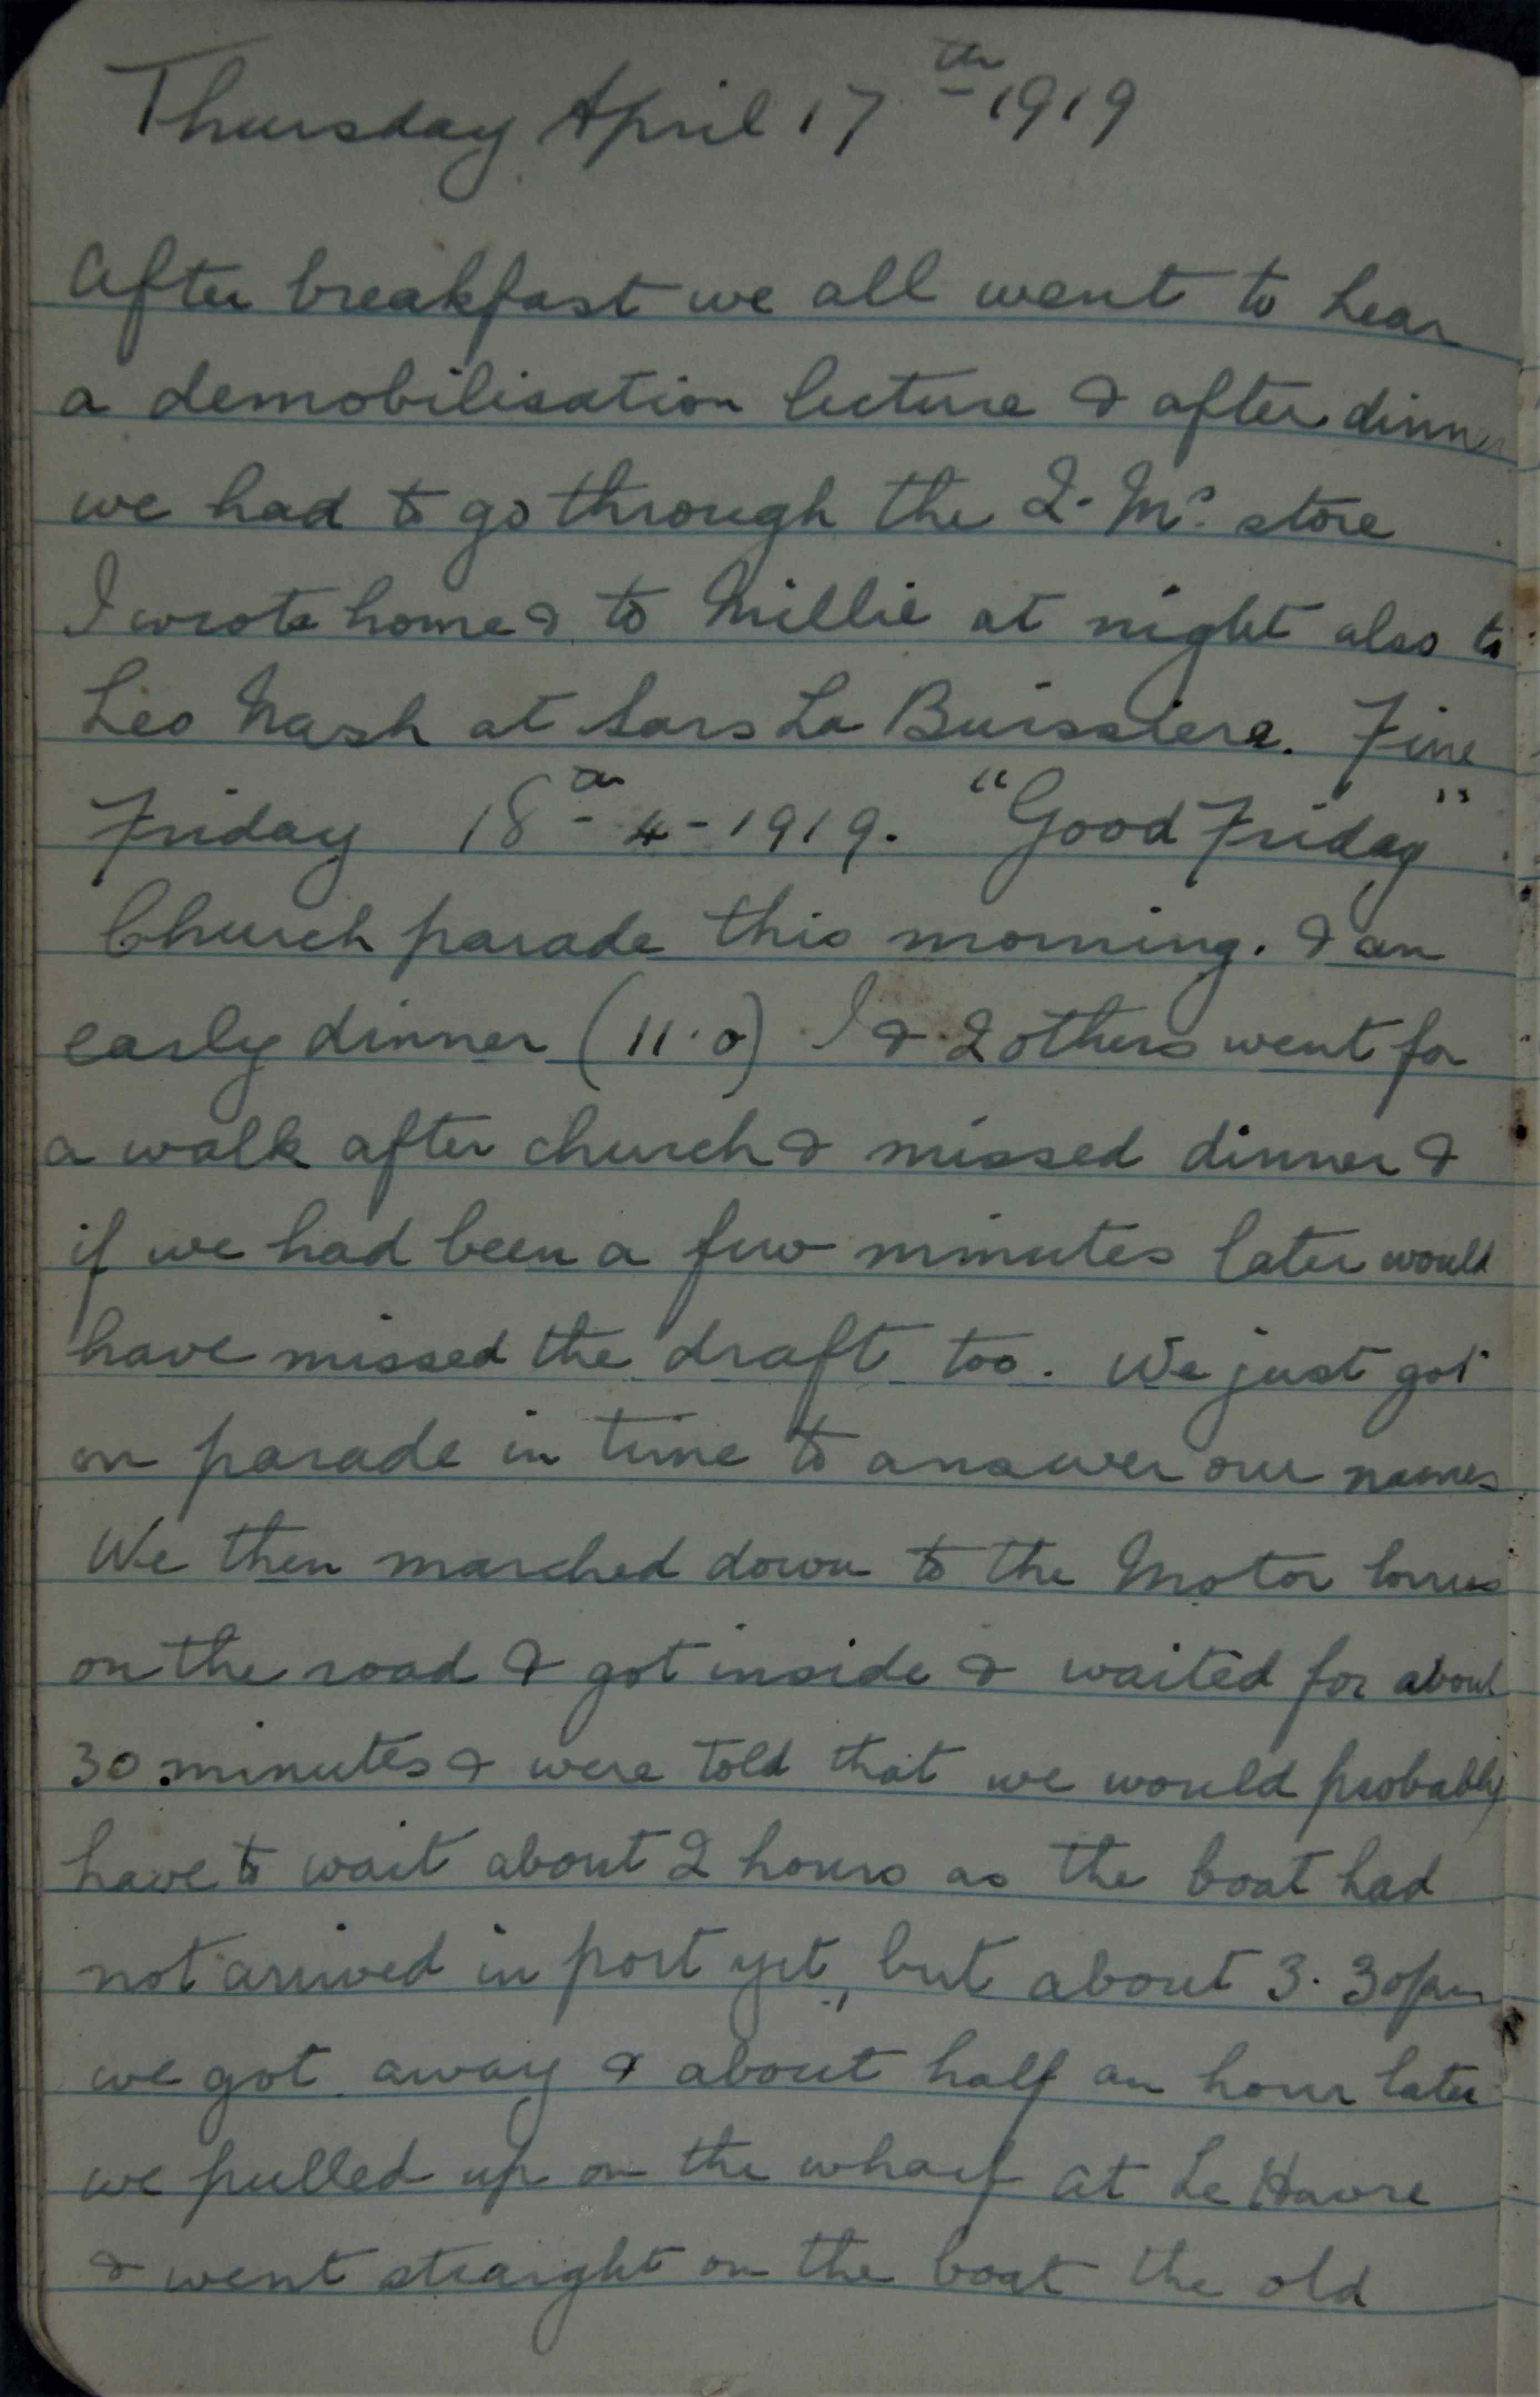 Thursday April 17th 1919
After breakfast we all went to hear
a demobilisation lecture & after dinner
we had to go through the Q. Ms. store
I wrote home & to Millie at night also to
Leo Nash at Sars La Buissiere. Fine
Friday 18th-4-1919. "Good Friday"
Church parade this morning. & an
early dinner (11.0) I & 2 others went for
a walk after church & missed dinner &
if we had been a few minutes later would
have missed the draft too. We just got
on parade in time to answer our names
We then marched down to the Motor lorries
on the road & got inside & waited for about
30 minutes & were told that we would probably
have to wait about 2 hours as the boat had
not arrived in port yet, but about 3.30pm
we got away & about half an hour later
we pulled up on the wharf at Le Havre
& went straight on the boat the old